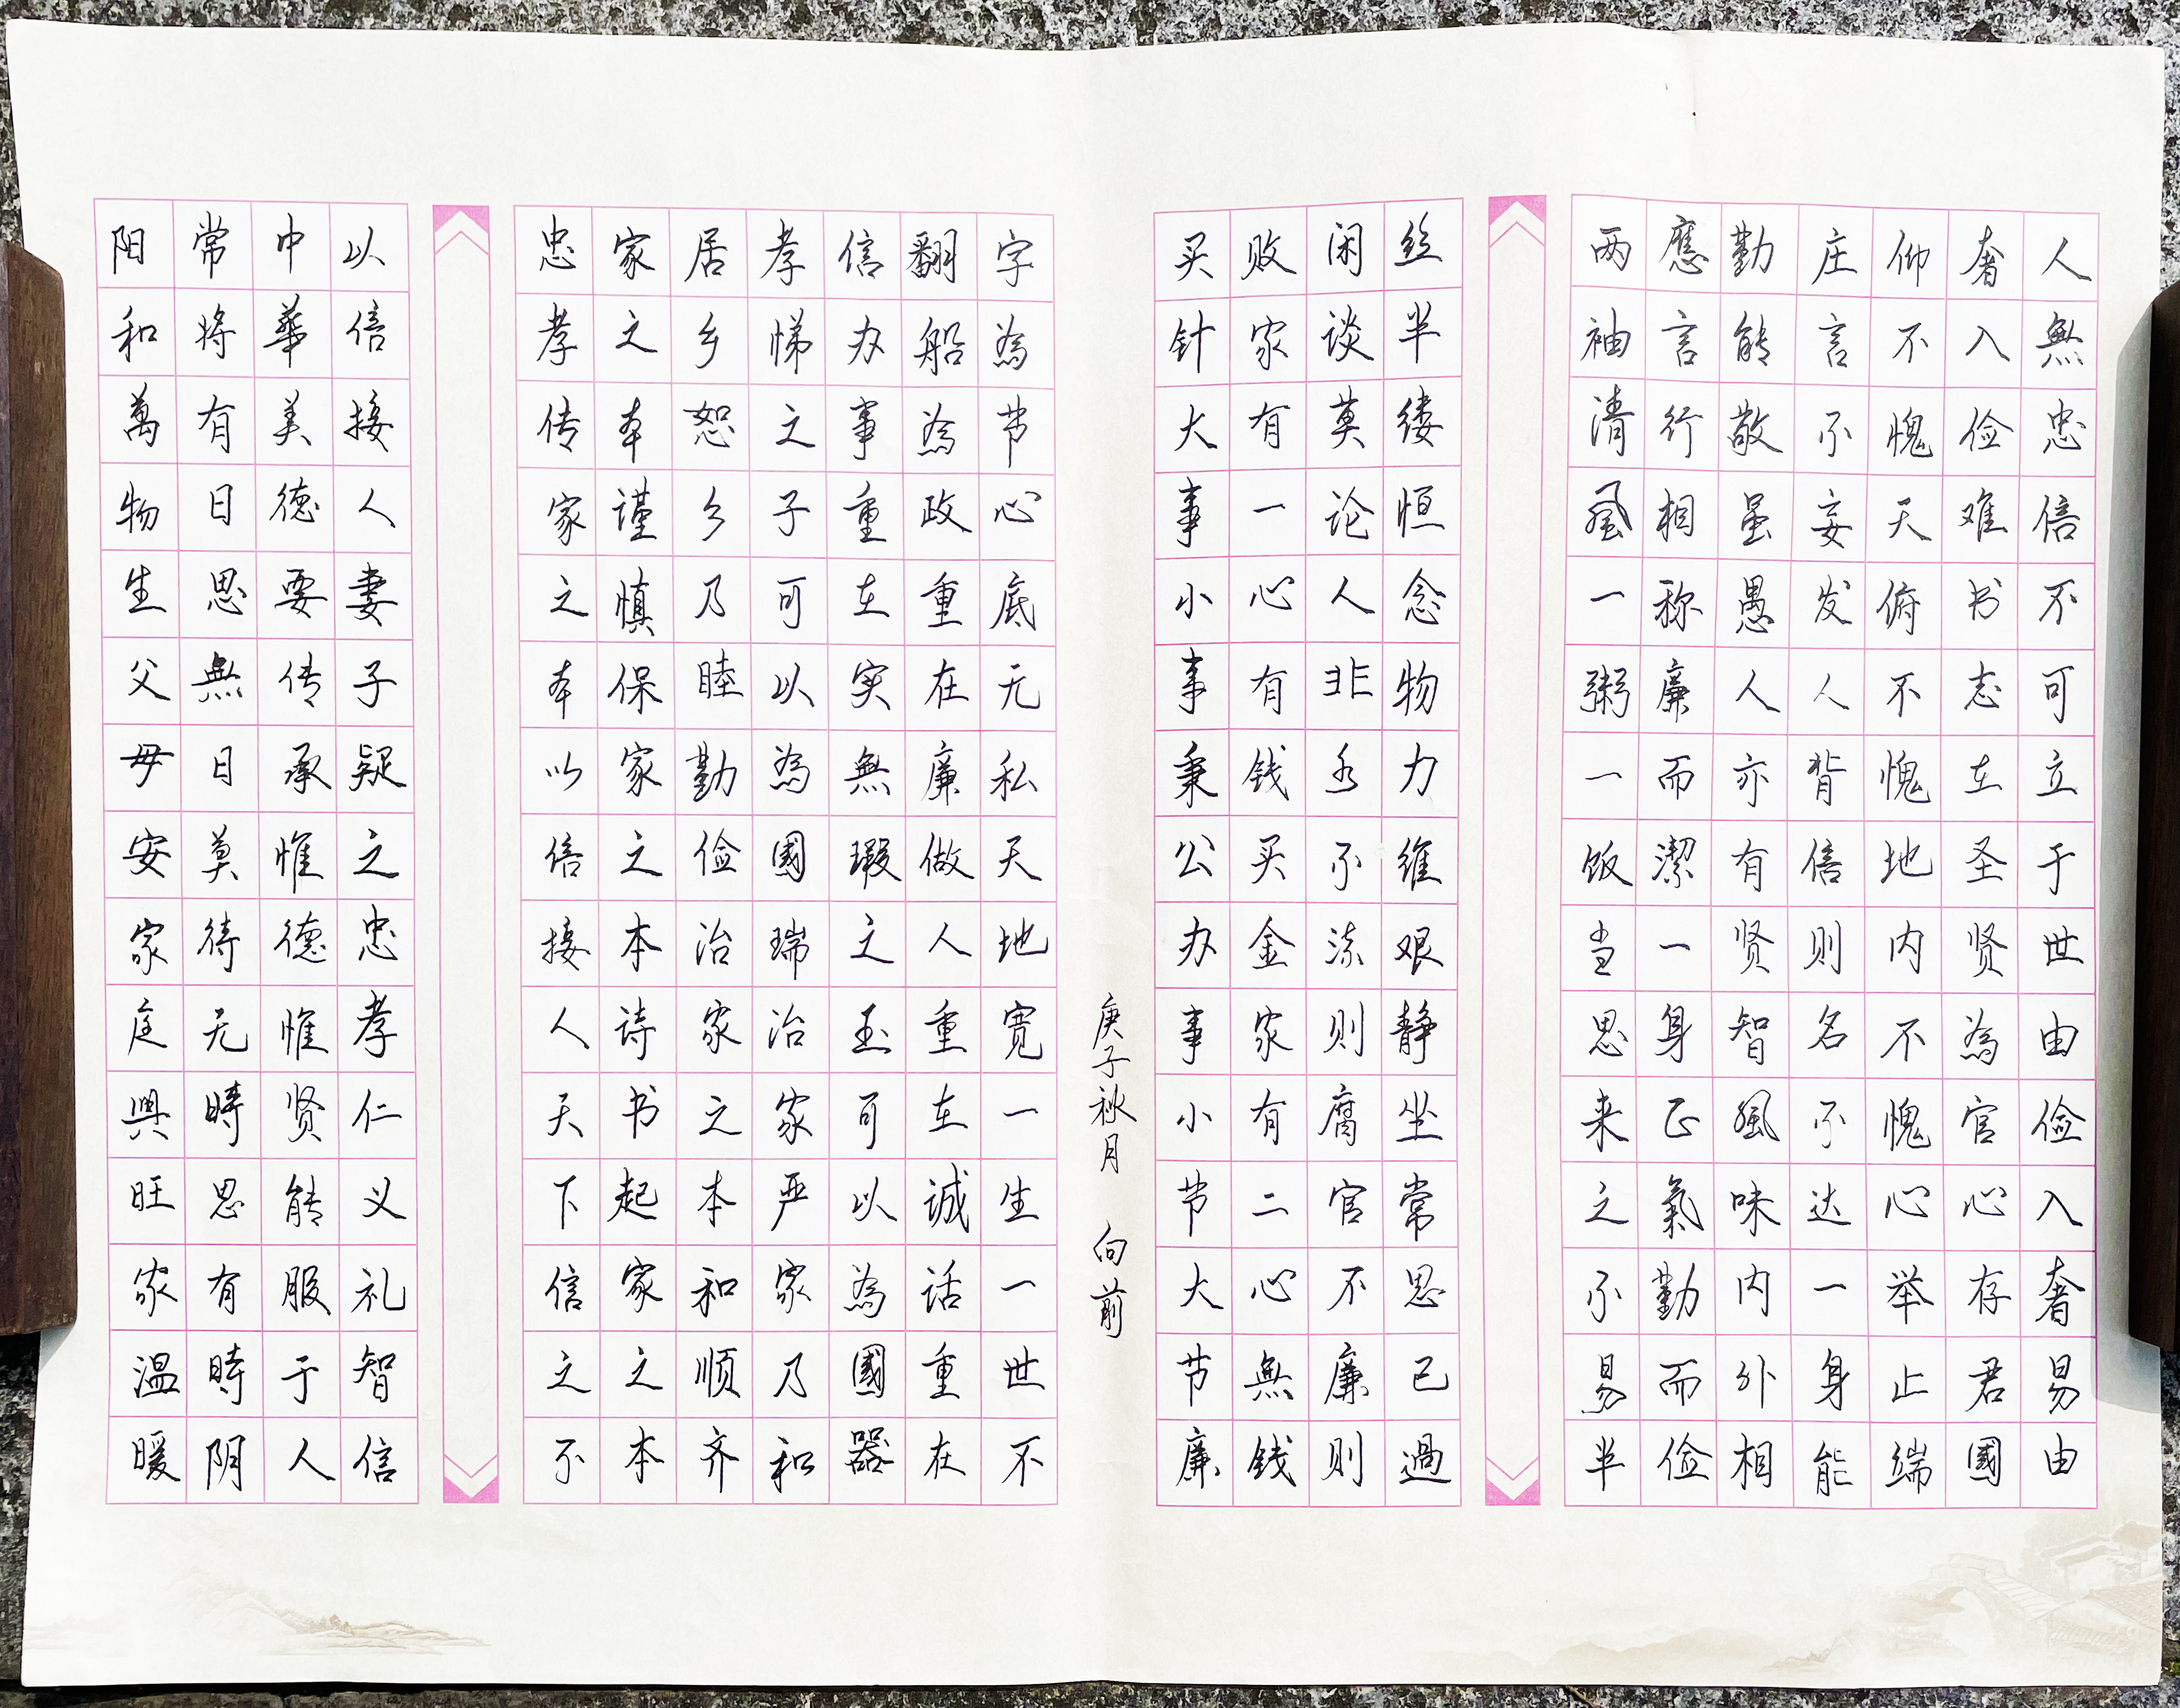 人無忠信不可立于世由俭入奢易由
奢入俭难书志在圣贤為官心存君國
仰不愧天俯不愧地内不愧心举止端
庄言不妄发人背信则名不达一身能
勤能敬虽愚人亦有贤智風味内外相
應言行相称廉而潔一身正氣勤而俭
两袖清風一粥一饭当思来之不易半
丝半缕恒念物力维艰静坐常思己過
闲谈莫论人非水不流则腐官不廉则
败家有一心有钱买金家有二心無钱
买针大事小事秉公办事小节大节廉
字為节心底无私天地宽一生一世不
翻船為政重在廉做人重在诚话重在
信办事重在实無瑕之玉可以為國器
孝悌之子可以為國瑞治家严家乃和
居乡恕乡乃睦勤俭治家之本和顺齐
家之本谨慎保家之本诗书起家之本
忠孝传家之本以信接人天下信之不
以信接人妻子疑之忠孝仁义礼智信
中華美德要传承惟德惟贤能服于人
常将有日思無日莫待无時思有時阴
阳和萬物生父母安家庭興旺家温暖
庚子秋月 向前